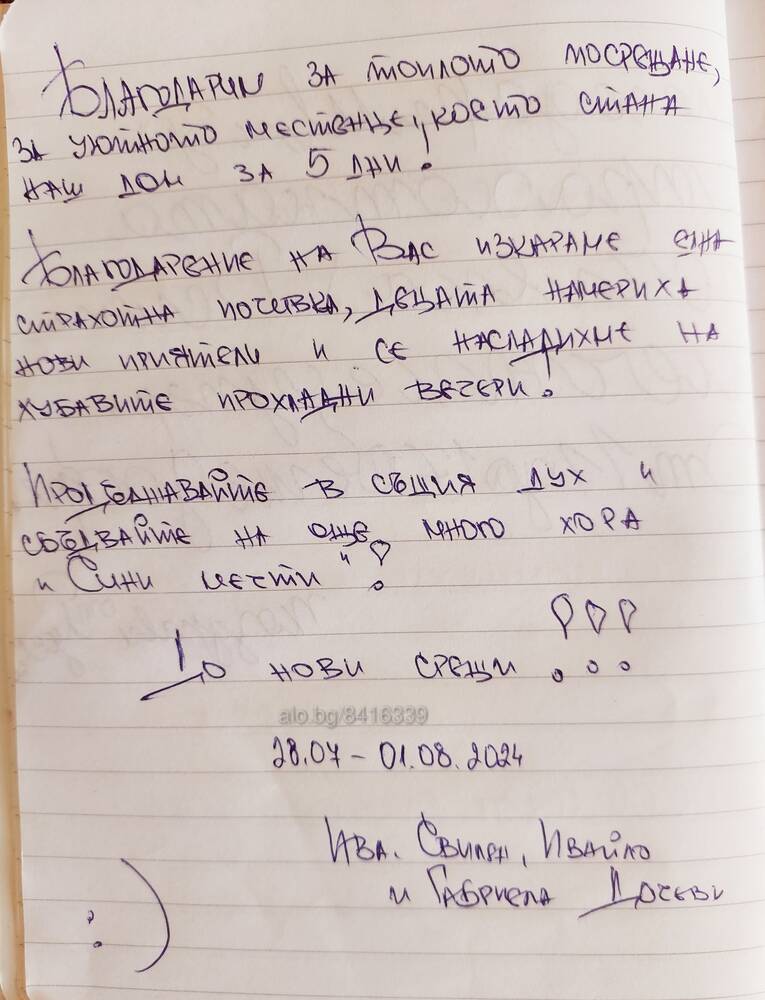 Благодарим за топлото посрещане,
за уютното местенце, което стана
наш дом за 5 дни!
Благодарение на Вас изкараме една
страхотна почивка, децата намериха
нови приятели и се насладихме на
хубавите прохладни вечери!
Продължавайте в същия дух и
сбъдвайте на още много хора
"Сини мечти"!
До нови срещи !!!
alo.bg/8416339
28.07 – 01.08.2024
Ива, Свилен, Ивайло
и Габриела Дочеви
:)